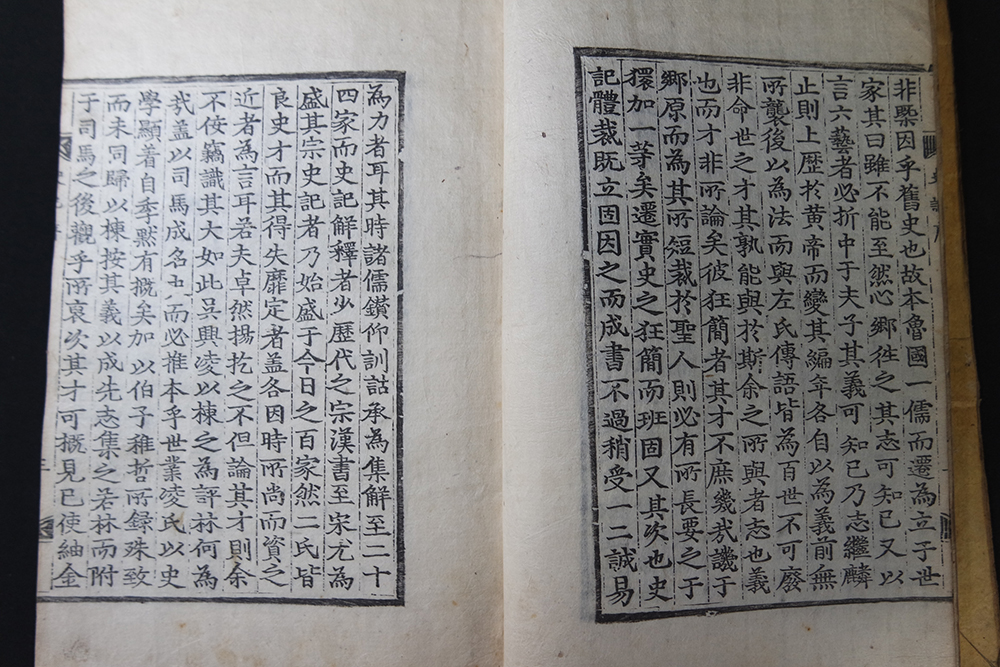 非槩因乎舊史也故本魯國一儒而遷為立子世
家其曰雖不能至然心鄉徃之其志可知已又以
言六藝者必折中于夫子其義可知已乃志繼麟
止則上歷於黄帝而變其編年各自以為義前無
所襲後以為法而與左氏傳語皆為百世不可廢
非命世之才其孰能與於斯余之所與者志也義
也而才非所論矣彼狂簡者其才不庶幾哉譏于
鄉原而為其所短裁於聖人則必有所長要之于
獧加一等矣遷實史之狂簡而班固又其次也史
記體裁既立固因之而成書不過稍受一二誠易
為力者耳其時諸儒鑽仰訓詁承為集解至二十
四家而史記解釋者少歷代之宗漢書至宋尤為
盛其宗史記者乃始盛于今日之百家然二氏皆
良史才而其得失靡定者盖各因時所尚而資之
近者為言耳若夫卓然揚扢之不但論其才則余
不佞竊識其大如此吳興凌以棟之為評林何為
哉盖以司馬成名而必推本乎世業凌氏以史
學顯着自季黙有概矣加以伯子稚哲所録殊致
而未同歸以棟按其義以成先志集之若林而附
于司馬之後觀乎所裒次其才可概見已使紬金